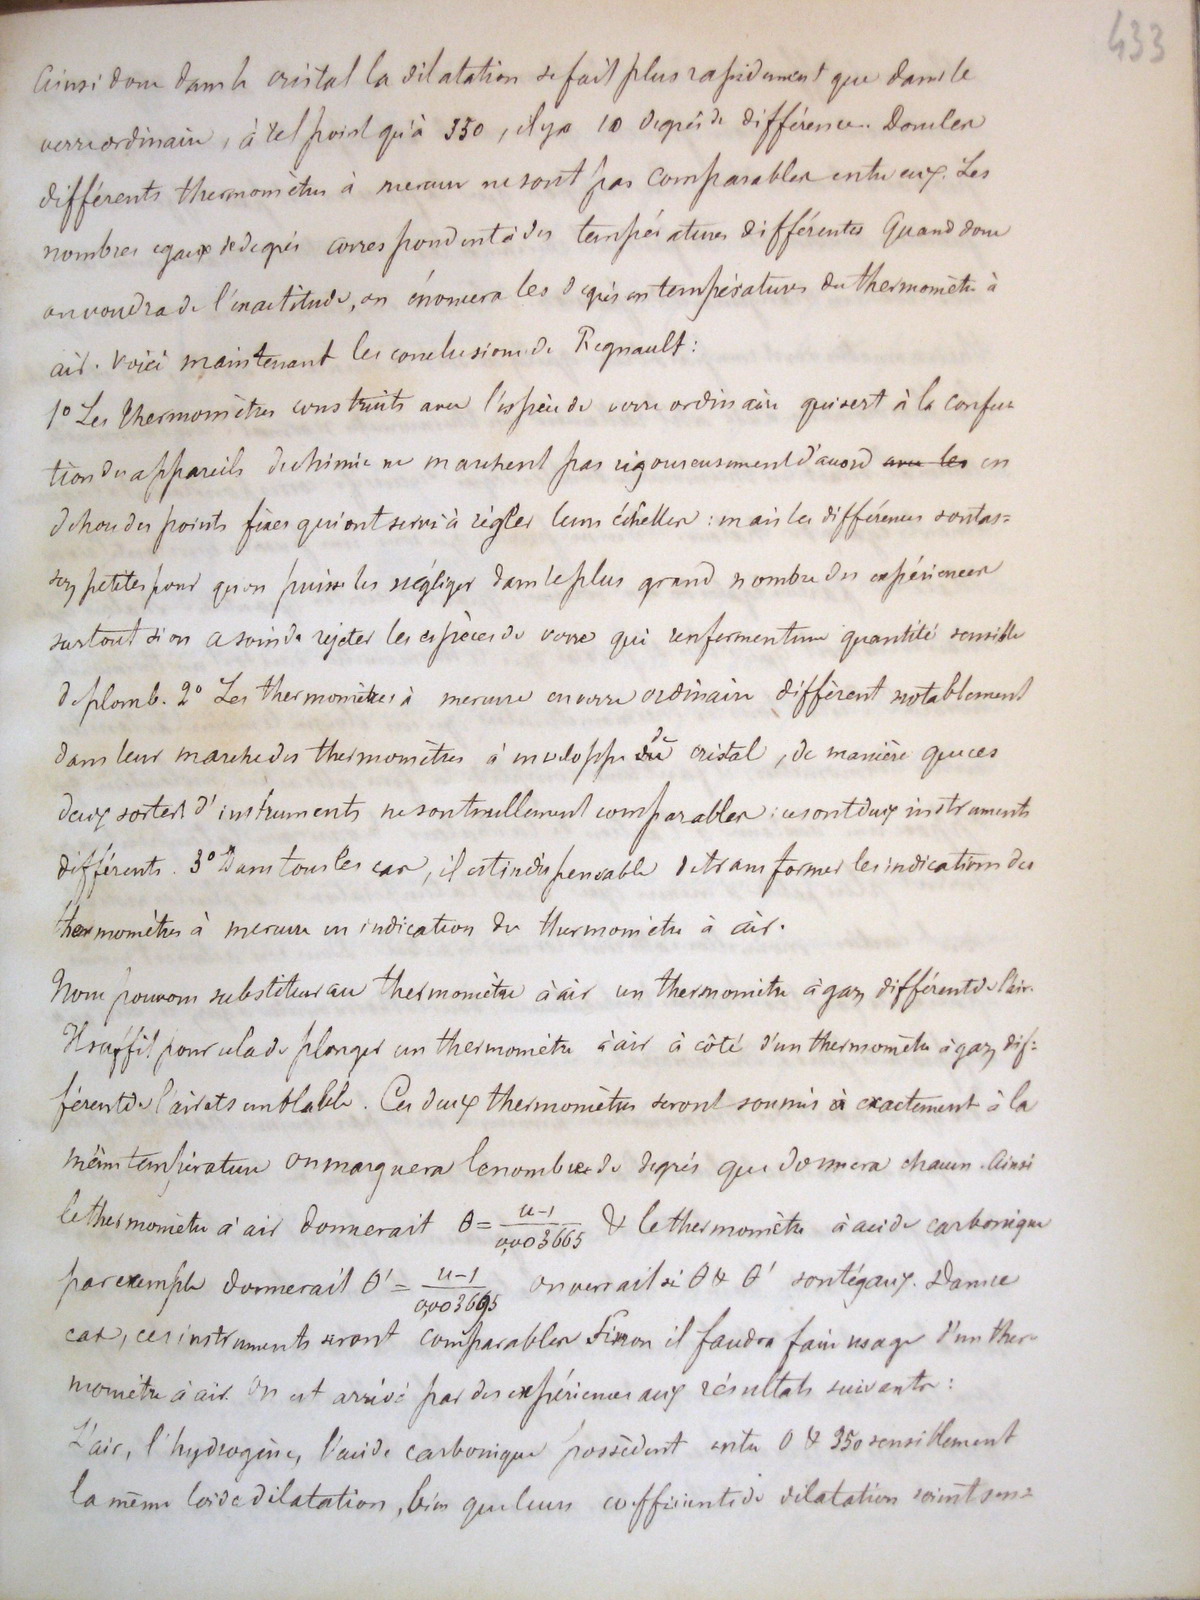 433
Ainsi donc dans le cristal la dilatation se fait plus rapidement que dans le
verre ordinaire, à tel point qu'à 350, il y a 10 degrés de différence. Donc les
différents thermomètres à mercure ne sont pas comparables entre eux. Les
nombres egaux de degrés correspondent à des températures différentes Quand donc
on voudra de l'exactitude, on énoncera les degrés en températures du thermomètre à
air. Voici maintenant les conclusions de Regnault :
1° Les thermomètres construits avec l'espèce de verre ordinaire qui sert à la confec
tion des appareils de chimie ne marchent pas rigoureusement d'accord avec les en
dehors des points fixes qui ont servi à régler leurs échelles : mais les différences sont as=
sez petites pour qu'on puisse les négliger dans le plus grand nombre des expériences
surtout si on a soin de rejeter les espèces de verre qui renferment une quantité sensible
de plomb. 2° Les thermomètres à mercure en verre ordinaire diffèrent notablement
dans leur marche des thermomètres à enveloppe de cristal, de manière que ces
deux sortes d'instruments ne sont nullement comparables : ce sont deux instruments
différents. 3° Dans tous les cas, il est indispensable de transformer les indications des
thermomètres à mercure en indication du thermomètre à air.
Nous pouvons substituer au thermomètre à air un thermomètre à gaz différent de l'air.
Il suffit pour cela de plonger un thermomètre à air à côté d'un thermomètre à gaz dif=
férent de l'air et semblable. Ces deux thermomètres seront soumis à exactement à la
même température on marquera le nombre de degrés que donnera chacun. Ainsi
le thermomètre à air donnerait θ = u-1/0,003665 & le thermomètre à acide carbonique
par exemple donnerait θ' = u-1/0,003695 on verrait si θ & θ' sont égaux. Dans ce
cas, ces instruments seront comparables Sinon il faudra faire usage d'un ther-
momètre à air. On est arrivé par des expériences aux résultats suivants :
L'air, l'hydrogène, l'acide carbonique possèdent entre 0 & 350 sensiblement
la même loi de dilatation, bien que leurs coefficients de dilatation soient sen=